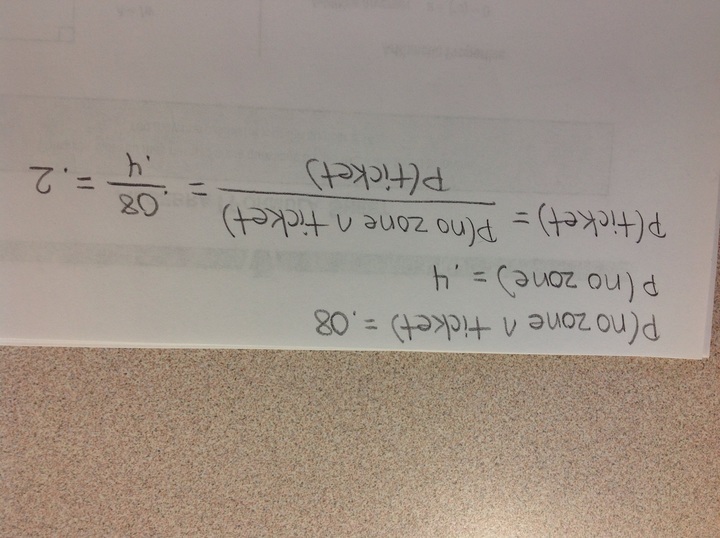 P(no zone ∩ ticket) = .08
P(no zone) = .4
P(ticket) = P(no zone ∩ ticket) / P(ticket) = .08 / .4 = .2